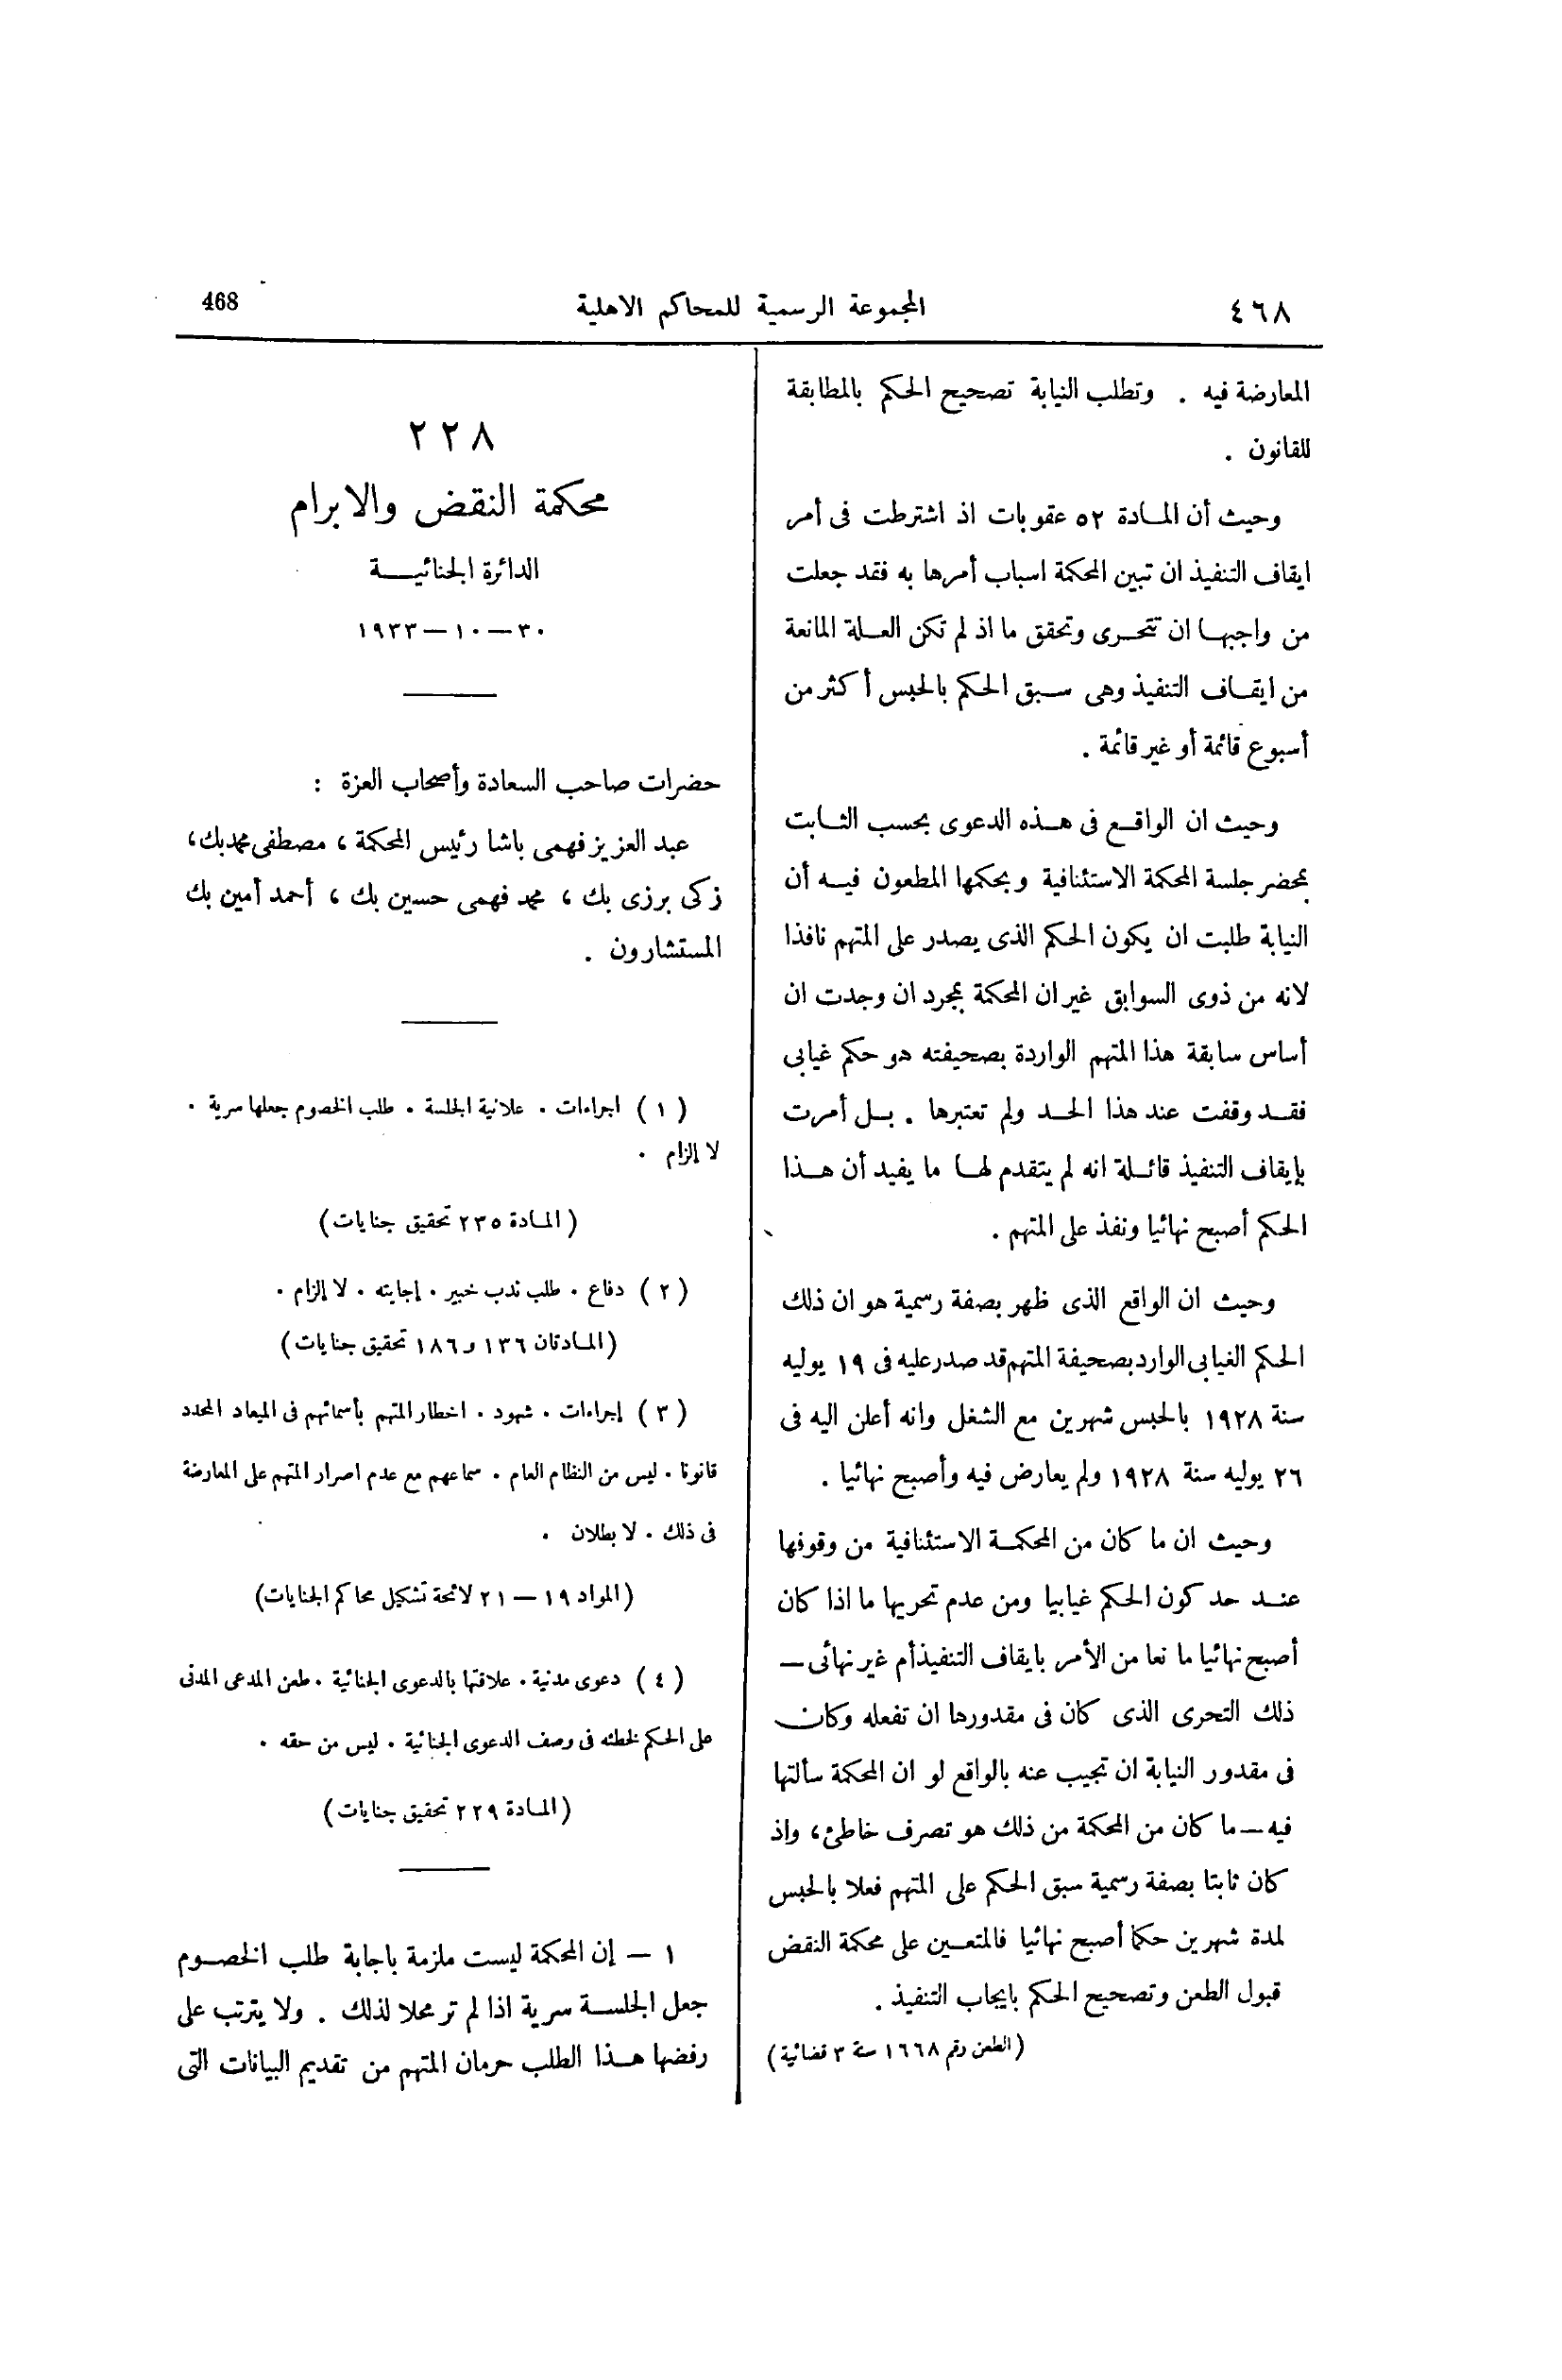 ٤٦٨
المجموعة الرسمية للمحاكم الاهلية
468
المعارضة فيه . وتطلب النيابة تصحيح الحكم بالمطابقة
للقانون .
وحيث أن المادة ٥٢ عقوبات اذ اشترطت فى أمر
ايقاف التنفيذ ان تبين المحكمة اسباب أمرها به فقد جعلت
من واجبها ان تتحرى وتحقق ما اذ لم تكن العلة المانعة
من ايقاف التنفيذ وهى سبق الحكم بالحبس أكثر من
أسبوع قائمة أو غير قائمة .
وحيث ان الواقع فى هذه الدعوى بحسب الثابت
بمحضر جلسة المحكمة الاستئنافية وبحكمها المطعون فيه أن
النيابة طلبت ان يكون الحكم الذى يصدر على المتهم نافذا
لانه من ذوى السوابق غير ان المحكمة بمجرد ان وجدت ان
أساس سابقة هذا المتهم الواردة بصحيفته هو حكم غيابى
فقد وقفت عند هذا الحد ولم تعتبرها . بل أمرت
بإيقاف التنفيذ قائلة انه لم يتقدم لها ما يفيد أن هذا
الحكم أصبح نهائيا ونفذ على المتهم .
وحيث ان الواقع الذى ظهر بصفة رسمية هو ان ذلك
الحكم الغيابى الوارد بصحيفة المتهم قد صدر عليه فى ١٩ يوليه
سنة ١٩٢٨ بالحبس شهرين مع الشغل وانه أعلن اليه فى
٢٦ يوليه سنة ١٩٢٨ ولم يعارض فيه وأصبح نهائيا .
وحيث ان ما كان من المحكمة الاستئنافية من وقوفها
عند حد كون الحكم غيابيا ومن عدم تحريها ما اذا كان
أصبح نهائيا ما نعا من الأمر بايقاف التنفيذ أم غير نهائى —
ذلك التحرى الذى كان فى مقدورها ان تفعله وكان
فى مقدور النيابة ان تجيب عنه بالواقع لو ان المحكمة سألتها
فيه — ما كان من المحكمة من ذلك هو تصرف خاطئ، واذ
كان ثابتا بصفة رسمية سبق الحكم على المتهم فعلا بالحبس
لمدة شهرين حكما أصبح نهائيا فالمتعين على محكمة النقض
قبول الطعن وتصحيح الحكم بايجاب التنفيذ .
(الطعن رقم ١٦٦٨ سنة ٣ قضائية)
٢٢٨
محكمة النقض والابرام
الدائرة الجنائية
٣٠—١٠—١٩٣٣
حضرات صاحب السعادة وأصحاب العزة :
عبد العزيز فهمى باشا رئيس المحكمة ، مصطفى محمد بك ،
زكى برزى بك ، محمد فهمى حسين بك ، أحمد أمين بك
المستشارون .
(١) اجراءات . علانية الجلسة . طلب الخصوم جعلها سرية .
لا إلزام .
(المادة ٢٣٥ تحقيق جنايات)
(٢) دفاع . طلب ندب خبير . إجابته . لا إلزام .
(المادتان ١٣٦ و١٨٦ تحقيق جنايات)
(٣) إجراءات . شهود . اخطار المتهم بأسمائهم فى الميعاد المحدد
قانونا . ليس من النظام العام . سماعهم مع عدم اصرار المتهم على المعارضة
فى ذلك . لا بطلان .
(المواد ١٩ — ٢١ لائحة تشكيل محاكم الجنايات)
(٤) دعوى مدنية . علاقتها بالدعوى الجنائية . طعن المدعى المدنى
على الحكم لخطئه فى وصف الدعوى الجنائية . ليس من حقه .
(المادة ٢٢٩ تحقيق جنايات)
١ — إن المحكمة ليست ملزمة باجابة طلب الخصوم
جعل الجلسة سرية اذا لم تر محلا لذلك . ولا يترتب على
رفضها هذا الطلب حرمان المتهم من تقديم البيانات التى